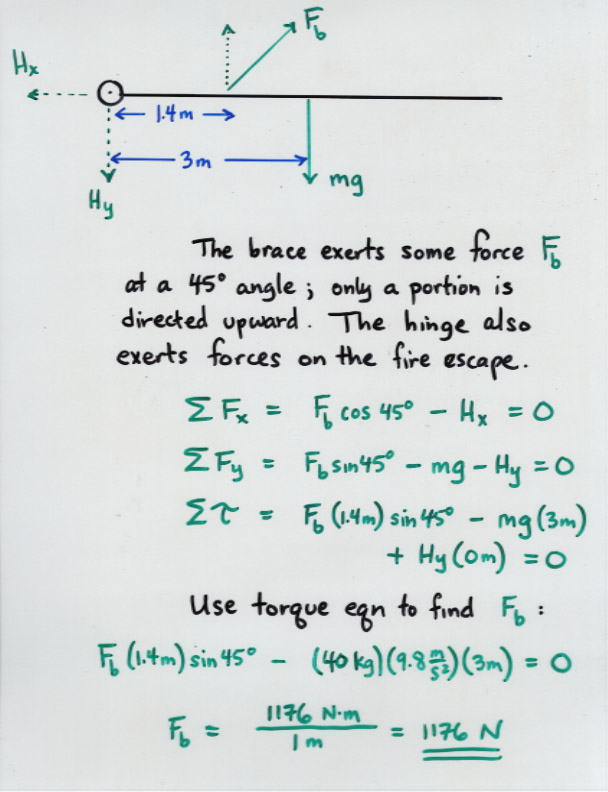 F_b
H_x
1.4 m
3 m
mg
H_y
The brace exerts some force F_b
at a 45° angle ; only a portion is
directed upward. The hinge also
exerts forces on the fire escape.
ΣF_x = F_b cos 45° - H_x = 0
ΣF_y = F_b sin 45° - mg - H_y = 0
Στ = F_b (1.4m) sin 45° - mg (3m)
+ H_y (0m) = 0
Use torque eqn to find F_b :
F_b (1.4m) sin 45° - (40 kg)(9.8 m/s²)(3m) = 0
F_b = 1176 N·m / 1 m = 1176 N